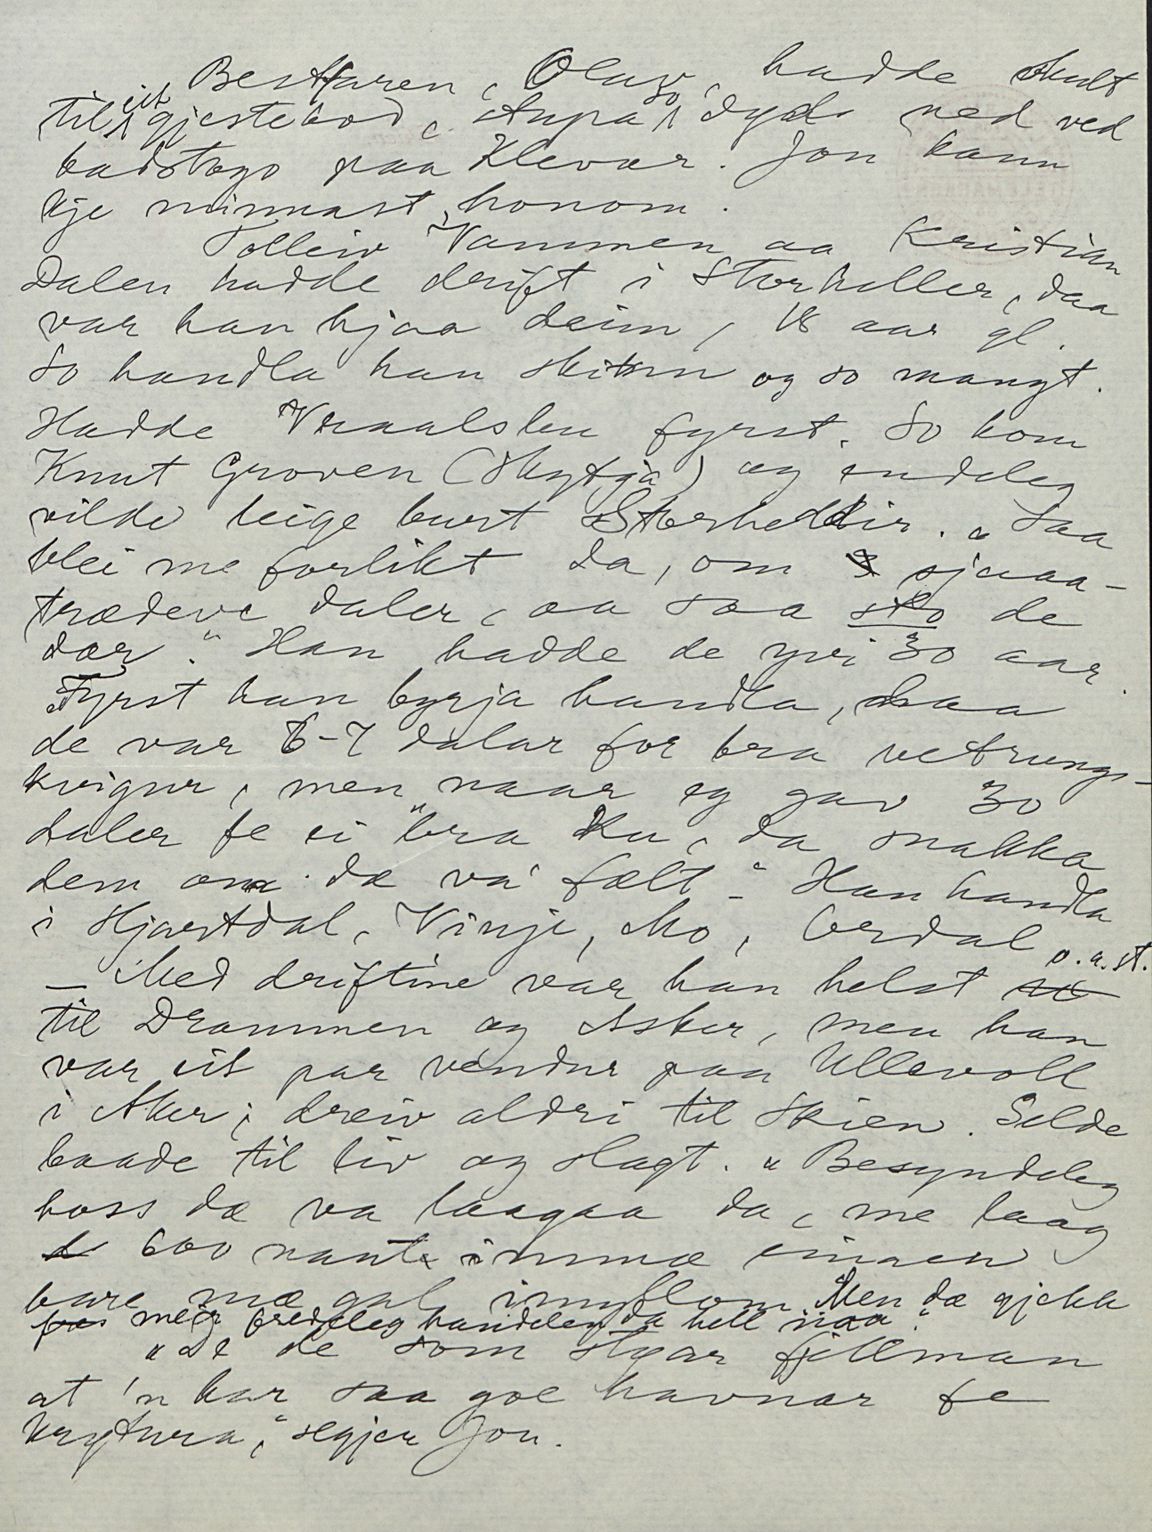 Bestfaren, Olav, hadde skult
til eit gjestebod, supa so dyds ned ved
badstogo paa Klevar. Jon kann
kje minnast honom.
Tolleiv Vammen aa Kristian
Dalen hadde drift i Storheller, daa
var han hjaa deim, 18 aar gl.
So handla han skinn og so mangt.
Hadde Vraalsbu fyrst. So kom
Knut Groven (Skytja) og endeleg
vilde leige burt Storheddir. "Saa
blei me forlikt da, om sjauaa-
trædeve daler, aa saa sto de
dær." Han hadde de yvi 30 aar.
Fyrst han byrja handla, saa
de var 6-7 dalar for bra vetrungs-
kvigur, "men naar eg gav 30
daler fe ei bra ku, da snakka
dem om da va' fælt." Han handla
i Hjartdal, Vinje, Mo, Aerdal o.a.st.
_ Med driftine var han helst
til Drammen og Asker, men han
var eit par vendur paa Ullevoll
i Aker; dreiv aldri til Skien. Selde
baade til liv og slagt. "Besyndeleg
hoss da va laagaa da, me laag
600 naut imma eingen
bare mæ gal imyllom. Men dæ gjekk
meir fredeleg handelen da hell naa."
"De de som styar fjellman
at 'n har saa goe havnar fe
krytura," segjer Jon.